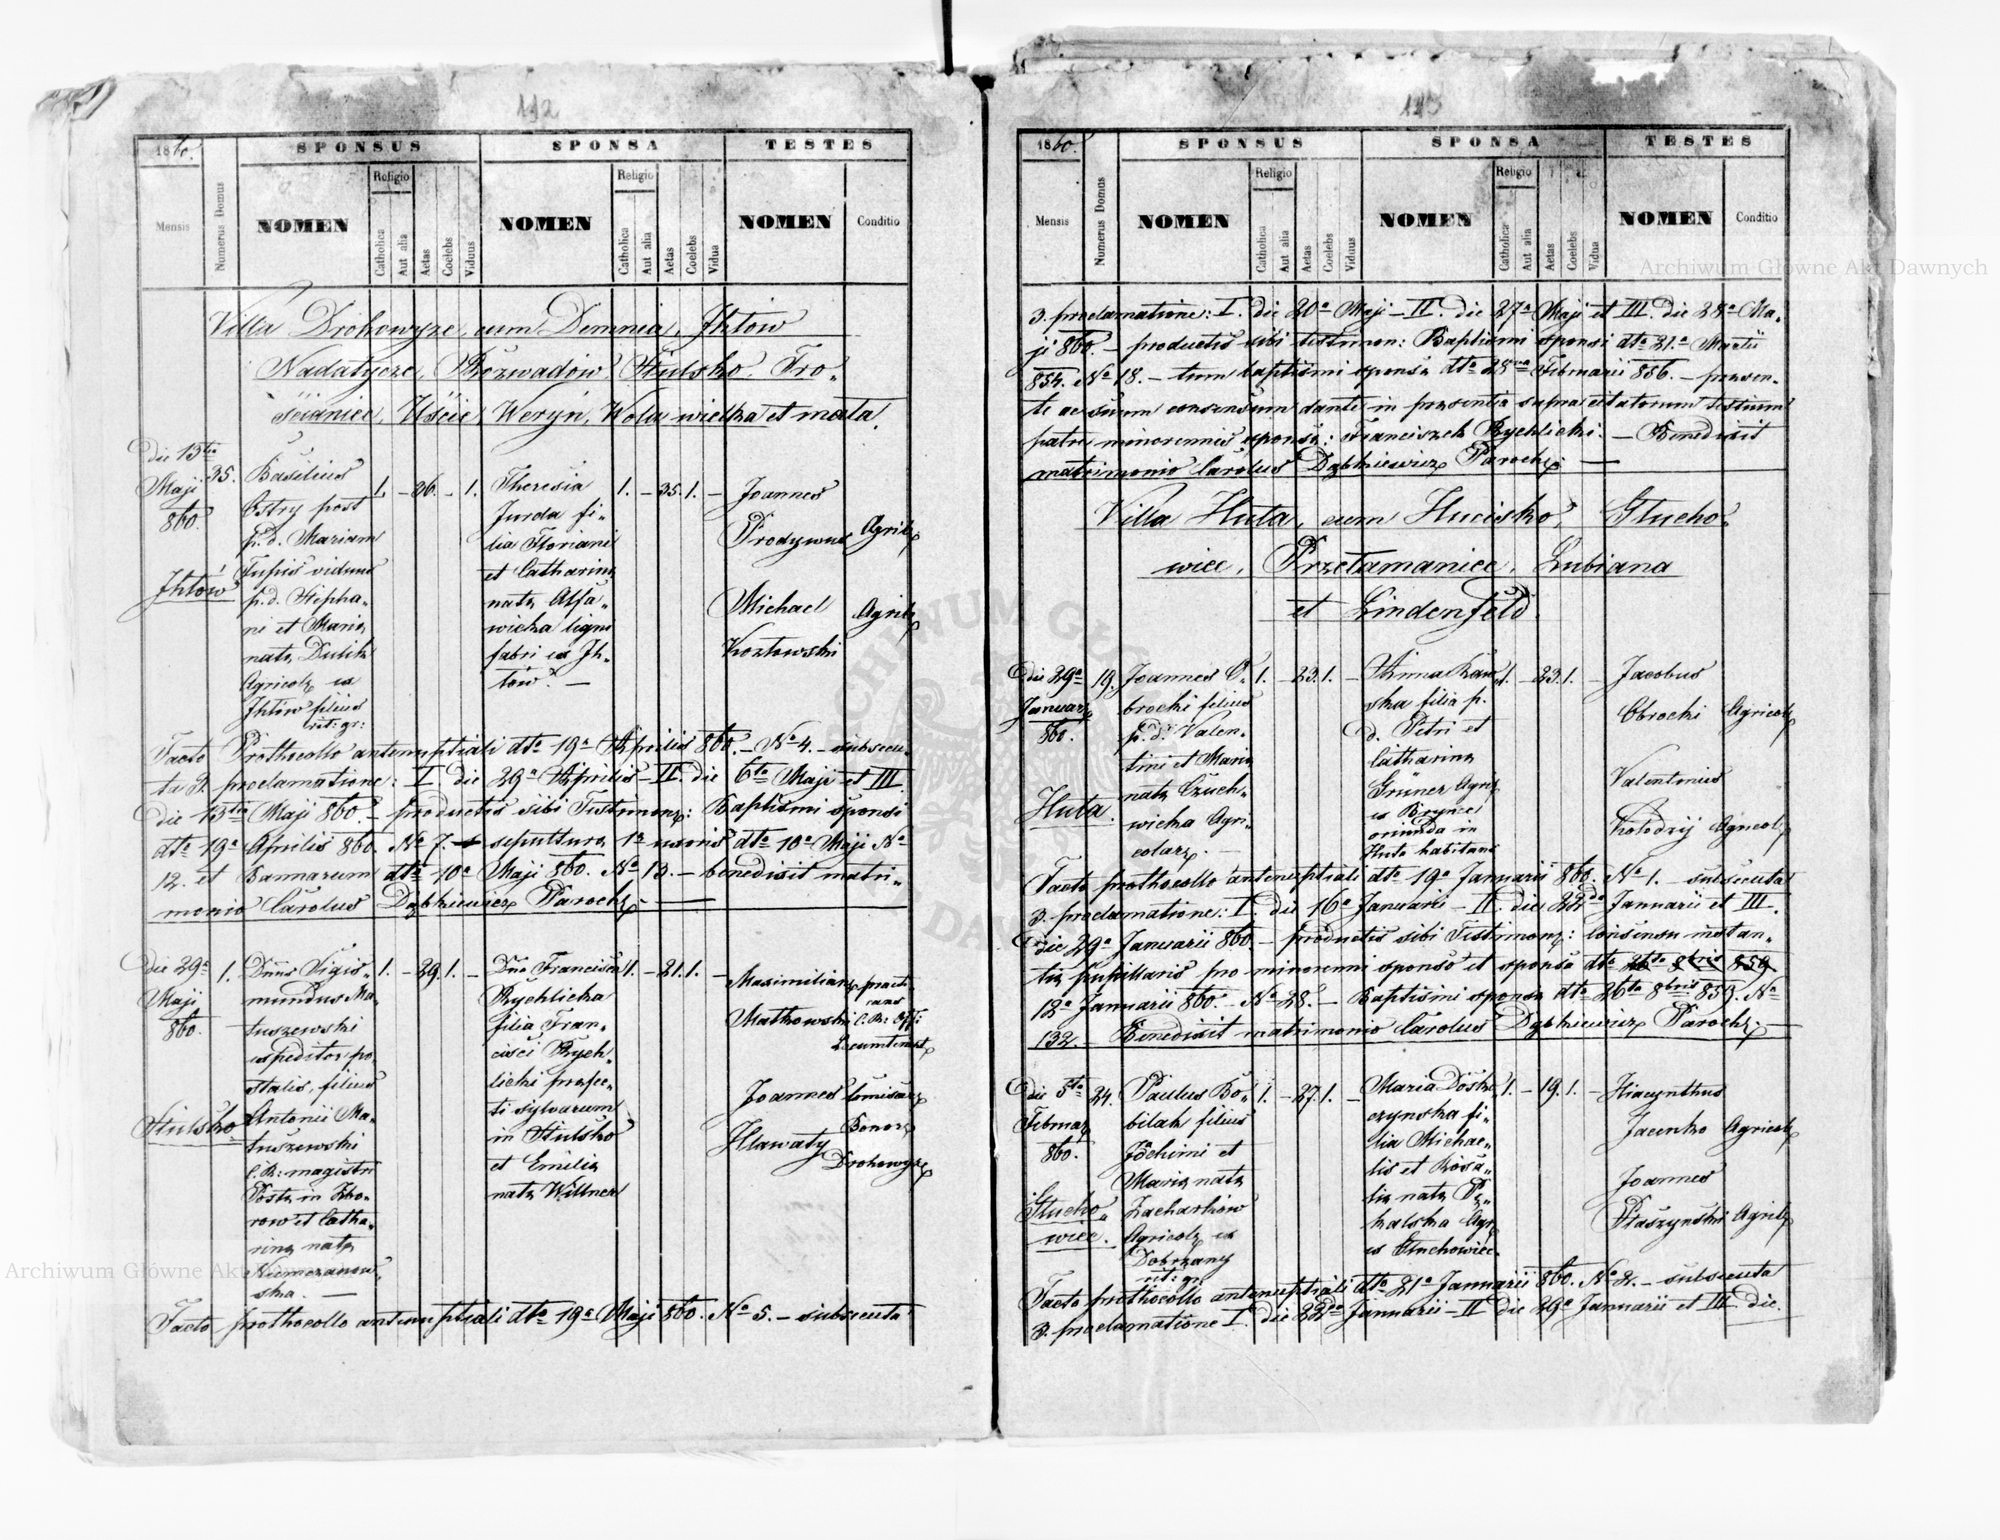 112
1860.
SPONSUS
SPONSA
TESTES
Mensis
Numerus Domus
NOMEN
Religio
Catholica
Aut alia
Aetas
Coelebs
Viduus
NOMEN
Religio
Catholica
Aut alia
Aetas
Coelebs
Vidua
NOMEN
Conditio
Villa Drohowyze, cum Demnia, Ihłow
Nadatycze, Rozwadów, Stulsko, Tro-
ścianiec, Uście, Weryń, Wola wielka et mała.
die 13tia
Maji
860.
Ihlow
35.
Basilius
Ostry post
p. d. Mariam
Tupis viduus
p. d. Stepha-
ni et Maria
nata Dulik
Agricola ex
Ihlow filius
rit: gr:
1. - 26. - 1.
Theresia
Jurda fi-
lia Floriani
et Catharina
nata
wicka ligni
fabri ex Ih-
low. —
1. - 35. 1. -
Joannes
Prodywus Agrila
Michael Agrila
Kozłowski
Facto Prothocollo antenuptiali dto 19a Aprilis 860. - No 4. - subsecu-
ta 3. proclamatione: I die 29a Aprilis - II. die 6ta Maji et III
die 13tia Maji 860. - productis sibi Testimonia: Baptismi sponsi
dto 19a Aprilis 860. No 7. - sepultura 1a uxoris dto 10a Maji No
12. et Bannorum dto 10a Maji 860. No 13. - benedixit matri-
monio Carolus Dąbkiewicz Parocha. —
die 29a
Maji
860.
Stulsko
1.
Dnus Sigis-
mundus Ma-
tuszewski
expeditor po-
stalis, filius
Antonii Ma-
tuszewski
C. R: magistri
Posta in Cho-
row et Catha-
rina nata
ska. —
1. - 29. 1. -
Dna Francisca
Rychlicka
filia Fran-
cisci Rych-
licki prafec-
ti sylvarum
in Stulsko
et Emilia
nata Willner
1. - 21. 1. -
Maximilian practi-
cans
Małkowski C. R: Offi
Locumtenent
Joannes Comisar
Bonor
Hławaty Drohowyz
Facto prothocollo antenuptiali dto 19a Maji 860. No 5. - subsecuta
113
1860.
SPONSUS
SPONSA
TESTES
Mensis
Numerus Domus
NOMEN
Religio
Catholica
Aut alia
Aetas
Coelebs
Viduus
NOMEN
Religio
Catholica
Aut alia
Aetas
Coelebs
Vidua
NOMEN
Conditio
3. proclamatione: I. die 20a Maji - II. die 27a Maji et III. die 28a Ma-
ji 860. - productis sibi testimon: Baptismi sponsi dto 21a Martii
854. No 18. - tum baptismi sponsa dto 28va Februarii 856. - praesen-
te ac suum consensum dante in praesentia supra citatorum testium
patre minorennis sponsa: Franciszek Rychlicki. - Benedixit
matrimonio Carolus Dąbkiewicz Parocha. —
Villa Huta, cum Hucisko, Głucho-
wiec, Przełamaniec, Lubiana
et Lindenfeld.
die 29a
Januar
860.
Huta.
19.
Joannes O-
brocki filius
p. d. Valen-
tini et Maria
nata Czuch-
wicka Agri-
colar. —
1. - 23. 1. -
Anna
ska filia p.
d. Petri et
Catharina
Grüner Agri
ex Brynce
oriunda in
Huta habitans
1. - 23. 1. -
Jacobus
Obrocki Agricola
Valentinus
Kołodzij Agricola
Facto prothocollo antenuptiali dto 19a Januarii 860. No 1. - subsecuta
3. proclamatione: I. die 16a Januarii - II. die 22da Januarii et III.
die 29a Januarii 860. - productis sibi Testimonia: consensu instan-
tia pupillaris pro minorenni sponso et sponsa dto 26ta 8bris 859
12a Januarii 860. No 28. - Baptismi sponsa dto 26ta 8bris 859. No
132. - Benedixit matrimonio Carolus Dąbkiewicz Parocha. —
die 5ta
Februar
860.
Głucho-
wiec.
24.
Paulus Bo-
bilak filius
Jochimi et
Maria nata
Zacharkow
Agricola ex
Dobrzany
rit: gr.
1. - 27. 1. -
Maria Dosko-
czynska fi-
lia Michae-
lis et Rosa-
lia nata Pę-
kalska Agr
ex Głuchowiec.
1. - 19. 1. -
Hiacynthus
Jacenko Agricola
Joannes
Ptaszyński Agrila
Facto prothocollo antenuptiali dto 21a Januarii 860. No 2. - subsecuta
3. proclamatione I. die 22da Januarii - II die 29a Januarii et III die
Archiwum Główne Akt Dawnych
Archiwum Główne Akt Dawnych
ARCHIWUM GŁÓWNE AKT DAWNYCH